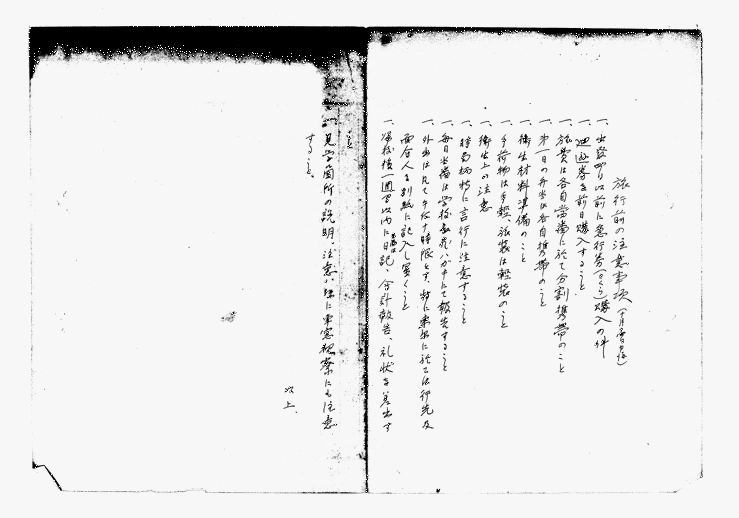 旅行前の注意事項
一、出発時刻以前に急行券購入の件
一、廻遊券を前日購入すること
一、旅費は各自常備に於て分割携帯のこと
一、第一日の弁当は各自携帯のこと
一、衛生材料準備のこと
一、手荷物は手軽、旅装は軽装のこと
一、衛生上の注意
一、時局柄特に言行に注意すること
一、毎日当番は学校長宛ハガキにて報告すること
一、外出は凡て午後十時限とす、特に東京に於ては行先及
面会人を別紙に記入し置くこと
一、帰校後一週間以内に日記、会計報告、礼状を差出す
こと
一、見学箇所の説明、注意
に車窓視察にも注意
すること。
以上.